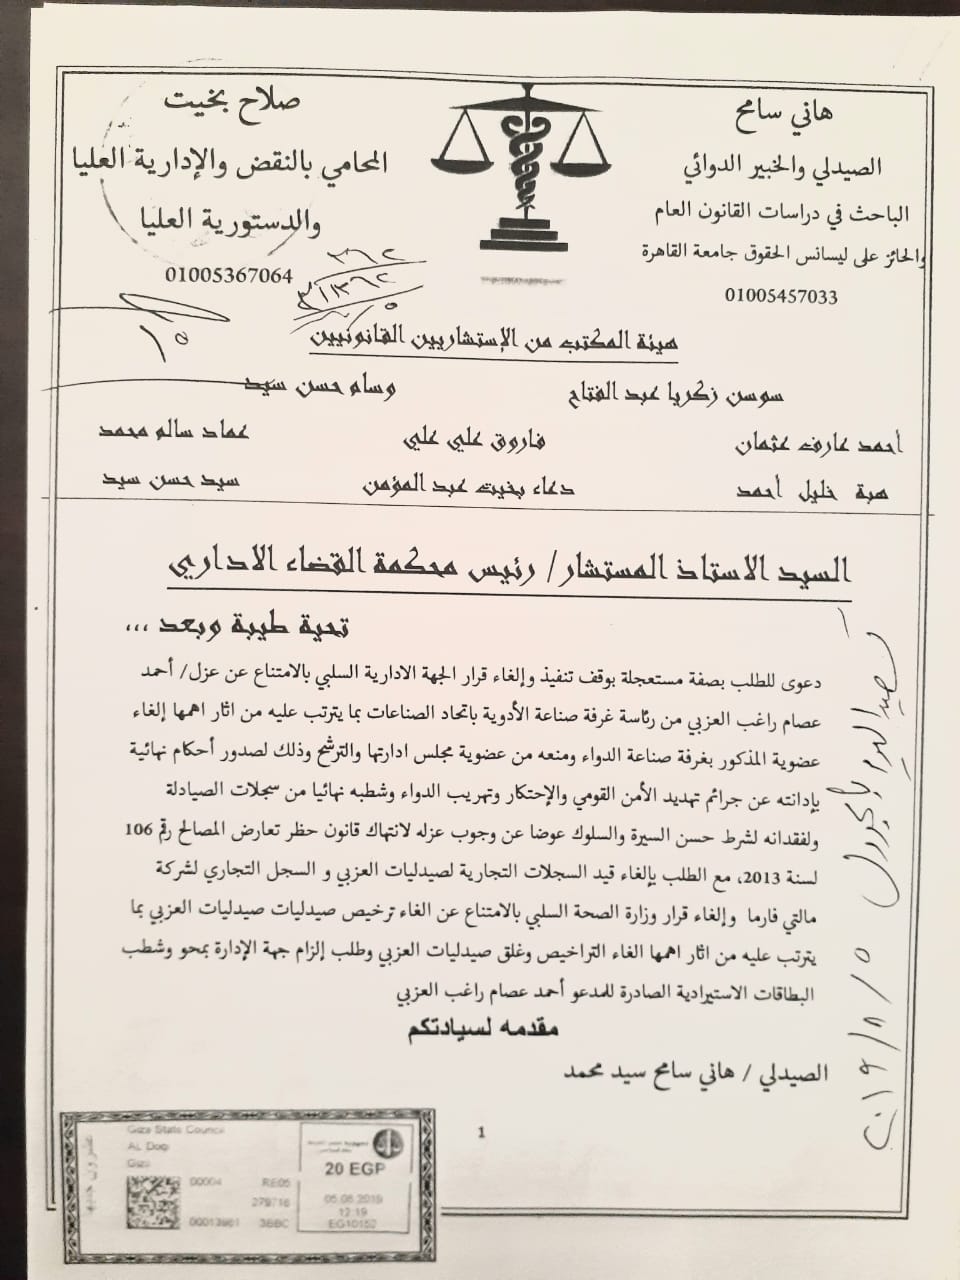 هاني سامح
الصيدلي والخبير الدوائي
الباحث في دراسات القانون العام
والحائز على ليسانس الحقوق جامعة القاهرة
01005457033
صلاح بخيت
المحامي بالنقض والإدارية العليا
والدستورية العليا
01005367064
هيئة المكتب من الإستشاريين القانونيين
سوسن زكريا عبد الفتاح وسام حسن سيد
أحمد عارف عثمان فاروق علي علي عماد سالم محمد
هبة خليل أحمد دعاء بخيت عبد المؤمن سيد حسن سيد
السيد الاستاذ المستشار/ رئيس محكمة القضاء الاداري
تحية طيبة وبعد ...
دعوى للطلب بصفة مستعجلة بوقف تنفيذ وإلغاء قرار الجهة الادارية السلبي بالامتناع عن عزل/ أحمد
عصام راغب العزبي من رئاسة غرفة صناعة الأدوية باتحاد الصناعات بما يترتب عليه من اثار اهمها إلغاء
عضوية المذكور بغرفة صناعة الدواء ومنعه من عضوية مجلس ادارتها والترشح وذلك لصدور أحكام نهائية
بإدانته عن جرائم تهديد الأمن القومي والإحتكار وتهريب الدواء وشطبه نهائيا من سجلات الصيادلة
ولفقدانه لشرط حسن السيرة والسلوك عوضا عن وجوب عزله لانتهاك قانون حظر تعارض المصالح رقم 106
لسنة 2013، مع الطلب بإلغاء قيد السجلات التجارية لصيدليات العزبي و السجل التجاري لشركة
مالتي فارما وإلغاء قرار وزارة الصحة السلبي بالامتناع عن الغاء ترخيص صيدليات صيدليات العزبي بما
يترتب عليه من اثار اهمها الغاء التراخيص وغلق صيدليات العزبي وطلب إلزام جهة الإدارة بمحو وشطب
البطاقات الاستيرادية الصادرة للمدعو أحمد عصام راغب العزبي
مقدمه لسيادتكم
الصيدلي / هاني سامح سيد محمد
1
Giza State Council
AL Doqi
Giza
00004 RE05
279716
00013961 3BBC
20 EGP
05.08.2019
12:19
EG10152
عشرون جنيها